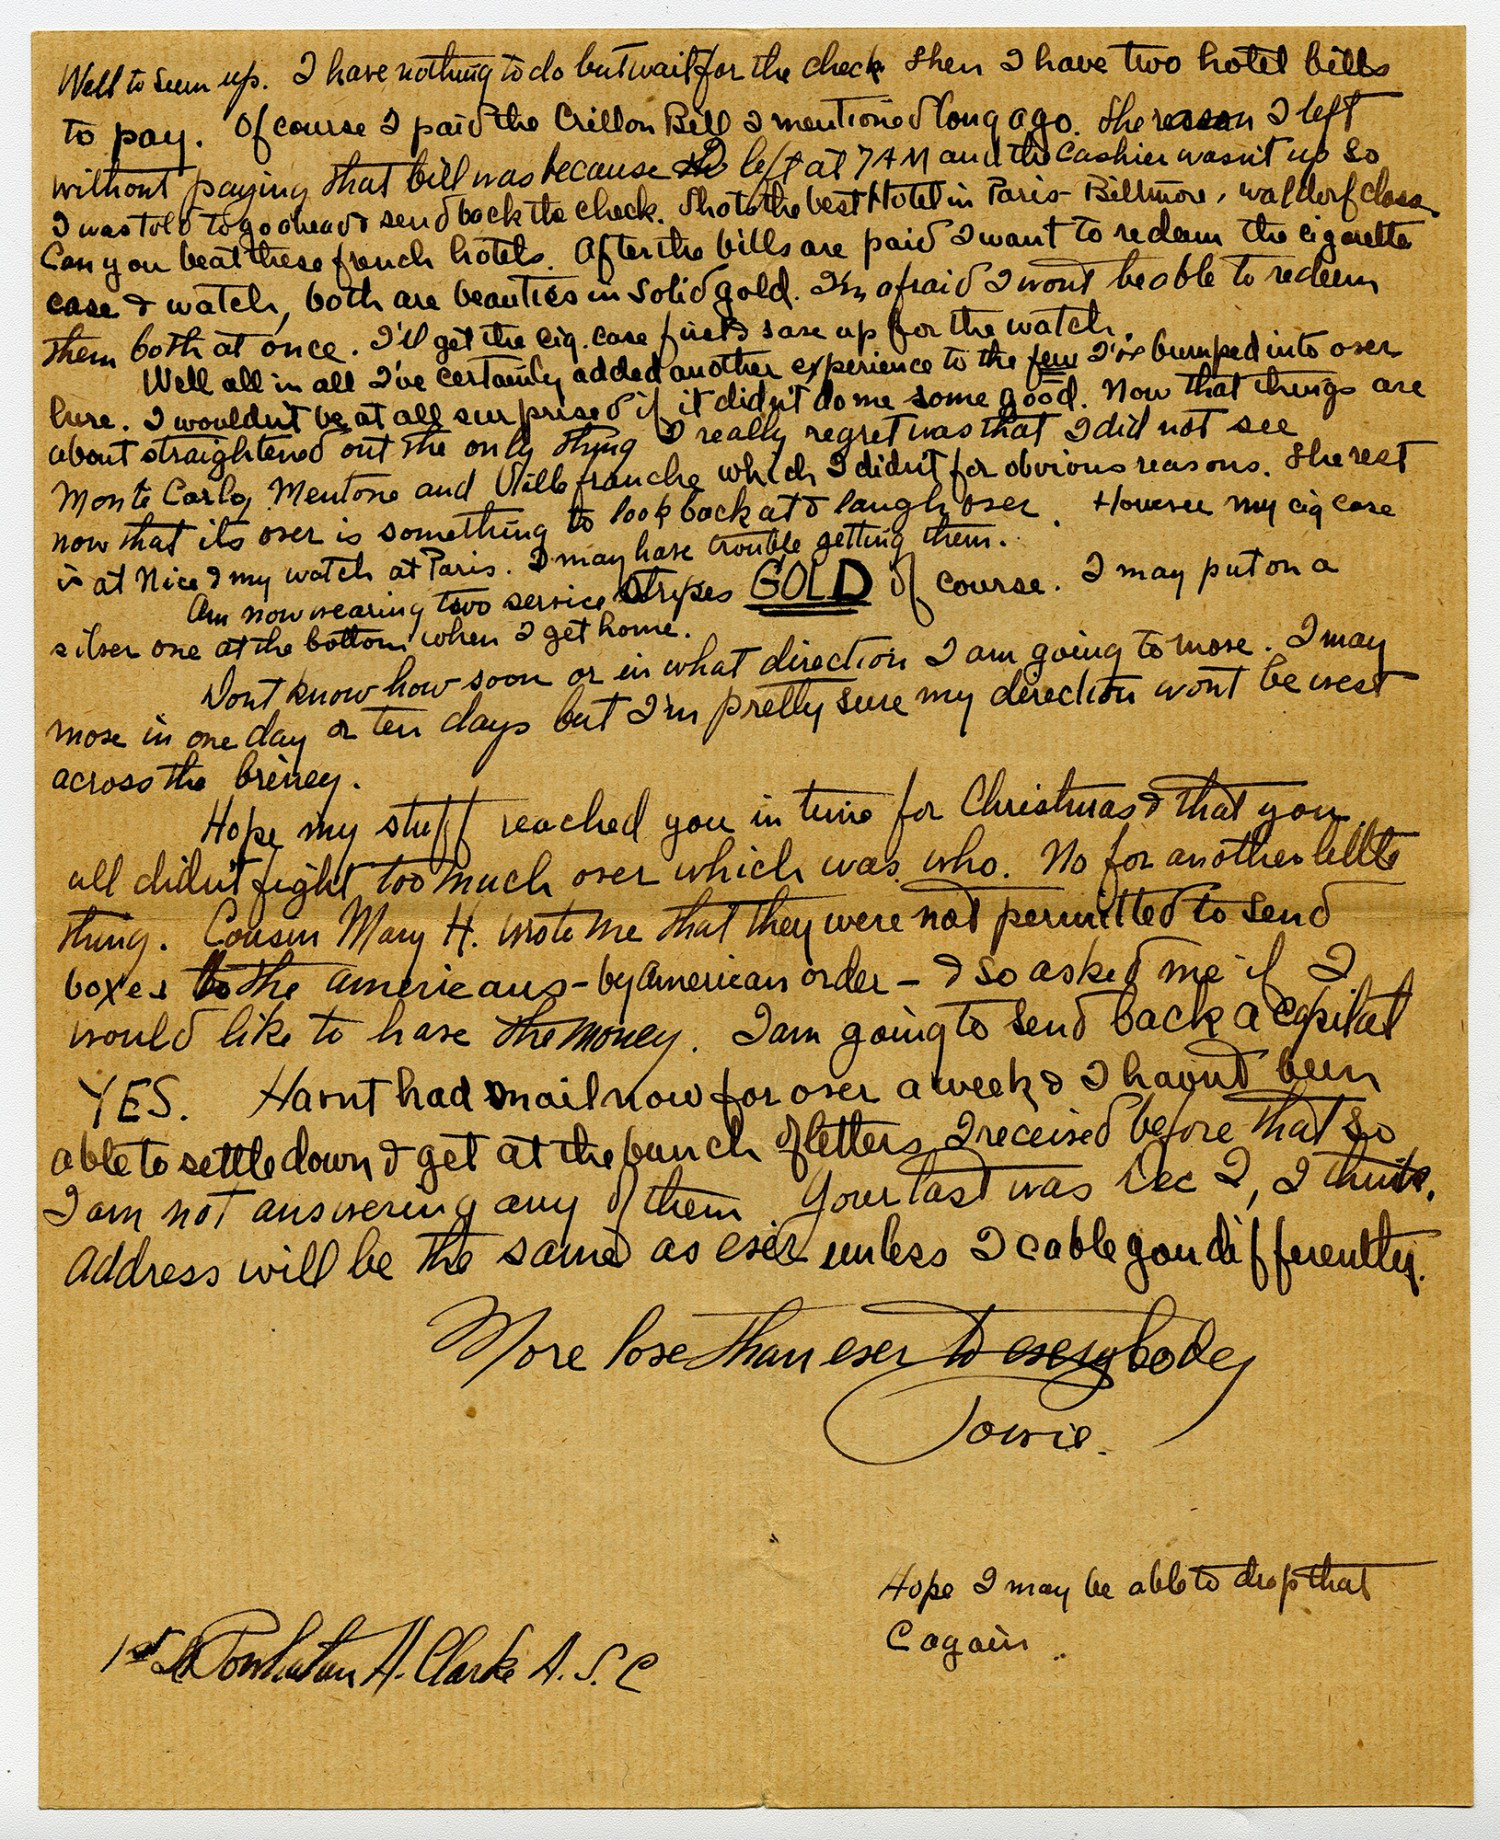 Well to sum up. I have nothing to do but wait for the check then I have two hotel bills
to pay. Of course I paid the Crillon Bill I mentioned long ago. The reason I left
without paying that bill was because I left at 7 AM and the cashier wasn't up so
I was told to go ahead & send back the check. Thats the best Hotel in Paris - Biltmore, Waldorf class
Can you beat these french hotels. After the bills are paid I want to redeem the cigarette
case & watch, both are beauties in solid gold. I'm afraid I wont be able to redeem
them both at once. I'll get the cig. case first & save up for the watch.
Well all in all I've certainly added another experience to the few I've bumped into over
here. I wouldn't be at all surprised if it didn't do me some good. Now that things are
about straightened out the only thing I really regret was that I did not see
Monte Carlo, Mentone and Villefranche which I didn't for obvious reasons. The rest
now that its over is something to look back at & laugh over. However my cig case
is at Nice & my watch at Paris. I may have trouble getting them.
Am now wearing two service stripes GOLD of course. I may put on a
silver one at the bottom when I get home.
Dont know how soon or in what direction I am going to move. I may
move in one day or ten days but I'm pretty sure my direction wont be west
across the briney.
Hope my stuff reached you in time for Christmas & that you
all didn't fight too much over which was who. No for another little
thing. Cousin Mary H. wrote me that they were not permitted to send
boxes to the americans - by American order - & so asked me if I
would like to have the money. I am going to send back a capital
YES. Havnt had mail now for over a week & I havnt been
able to settle down & get at the bunch of letters I received before that so
I am not answering any of them. Your last was Dec 2, I think.
Address will be the same as ever unless I cable you differently.
More love than ever to everybody
Powie.
Hope I may be able to drop that
C again ..
1st Lt Powhatan H. Clarke A.S.C